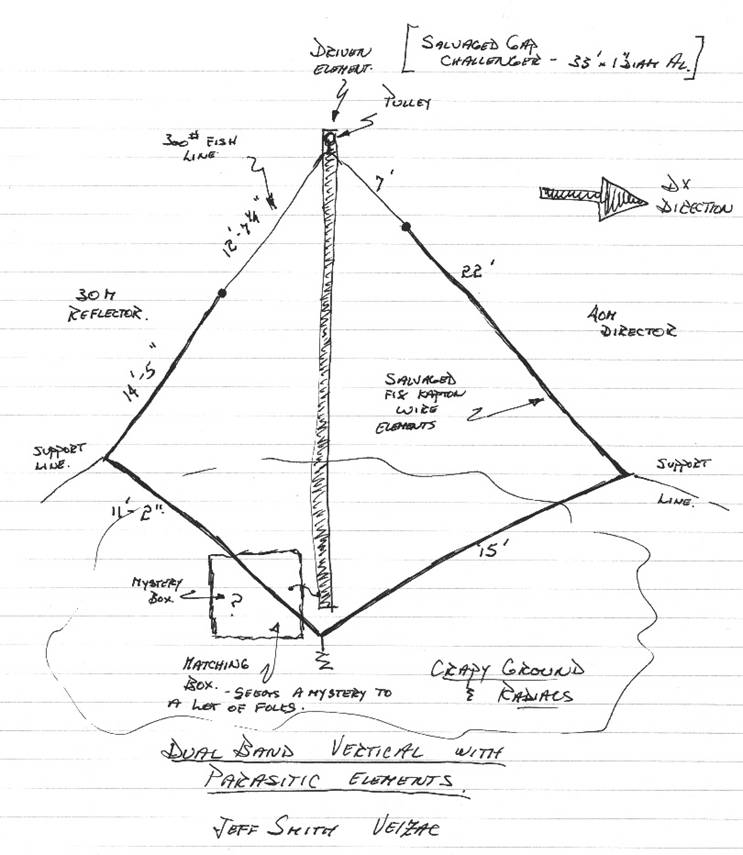 DRIVEN
ELEMENT.
[SALVAGED GAP
CHALLENGER - 33' x 1" DIAM AL.]
PULLEY
300# FISH
LINE.
12'-7¼"
7'
DX
DIRECTION
30M
REFLECTOR.
22'
40M
DIRECTOR
14'-5"
SALVAGED
F18 KAPTON
WIRE
ELEMENTS
SUPPORT
LINE.
SUPPORT
LINE.
11'-2"
15'
MYSTERY
BOX.
?
MATCHING
BOX. - SEEMS A MYSTERY TO
A LOT OF FOLKS.
CRAPY GROUND
& RADIALS
DUAL BAND VERTICAL WITH
PARASITIC ELEMENTS.
JEFF SMITH VE1ZAC